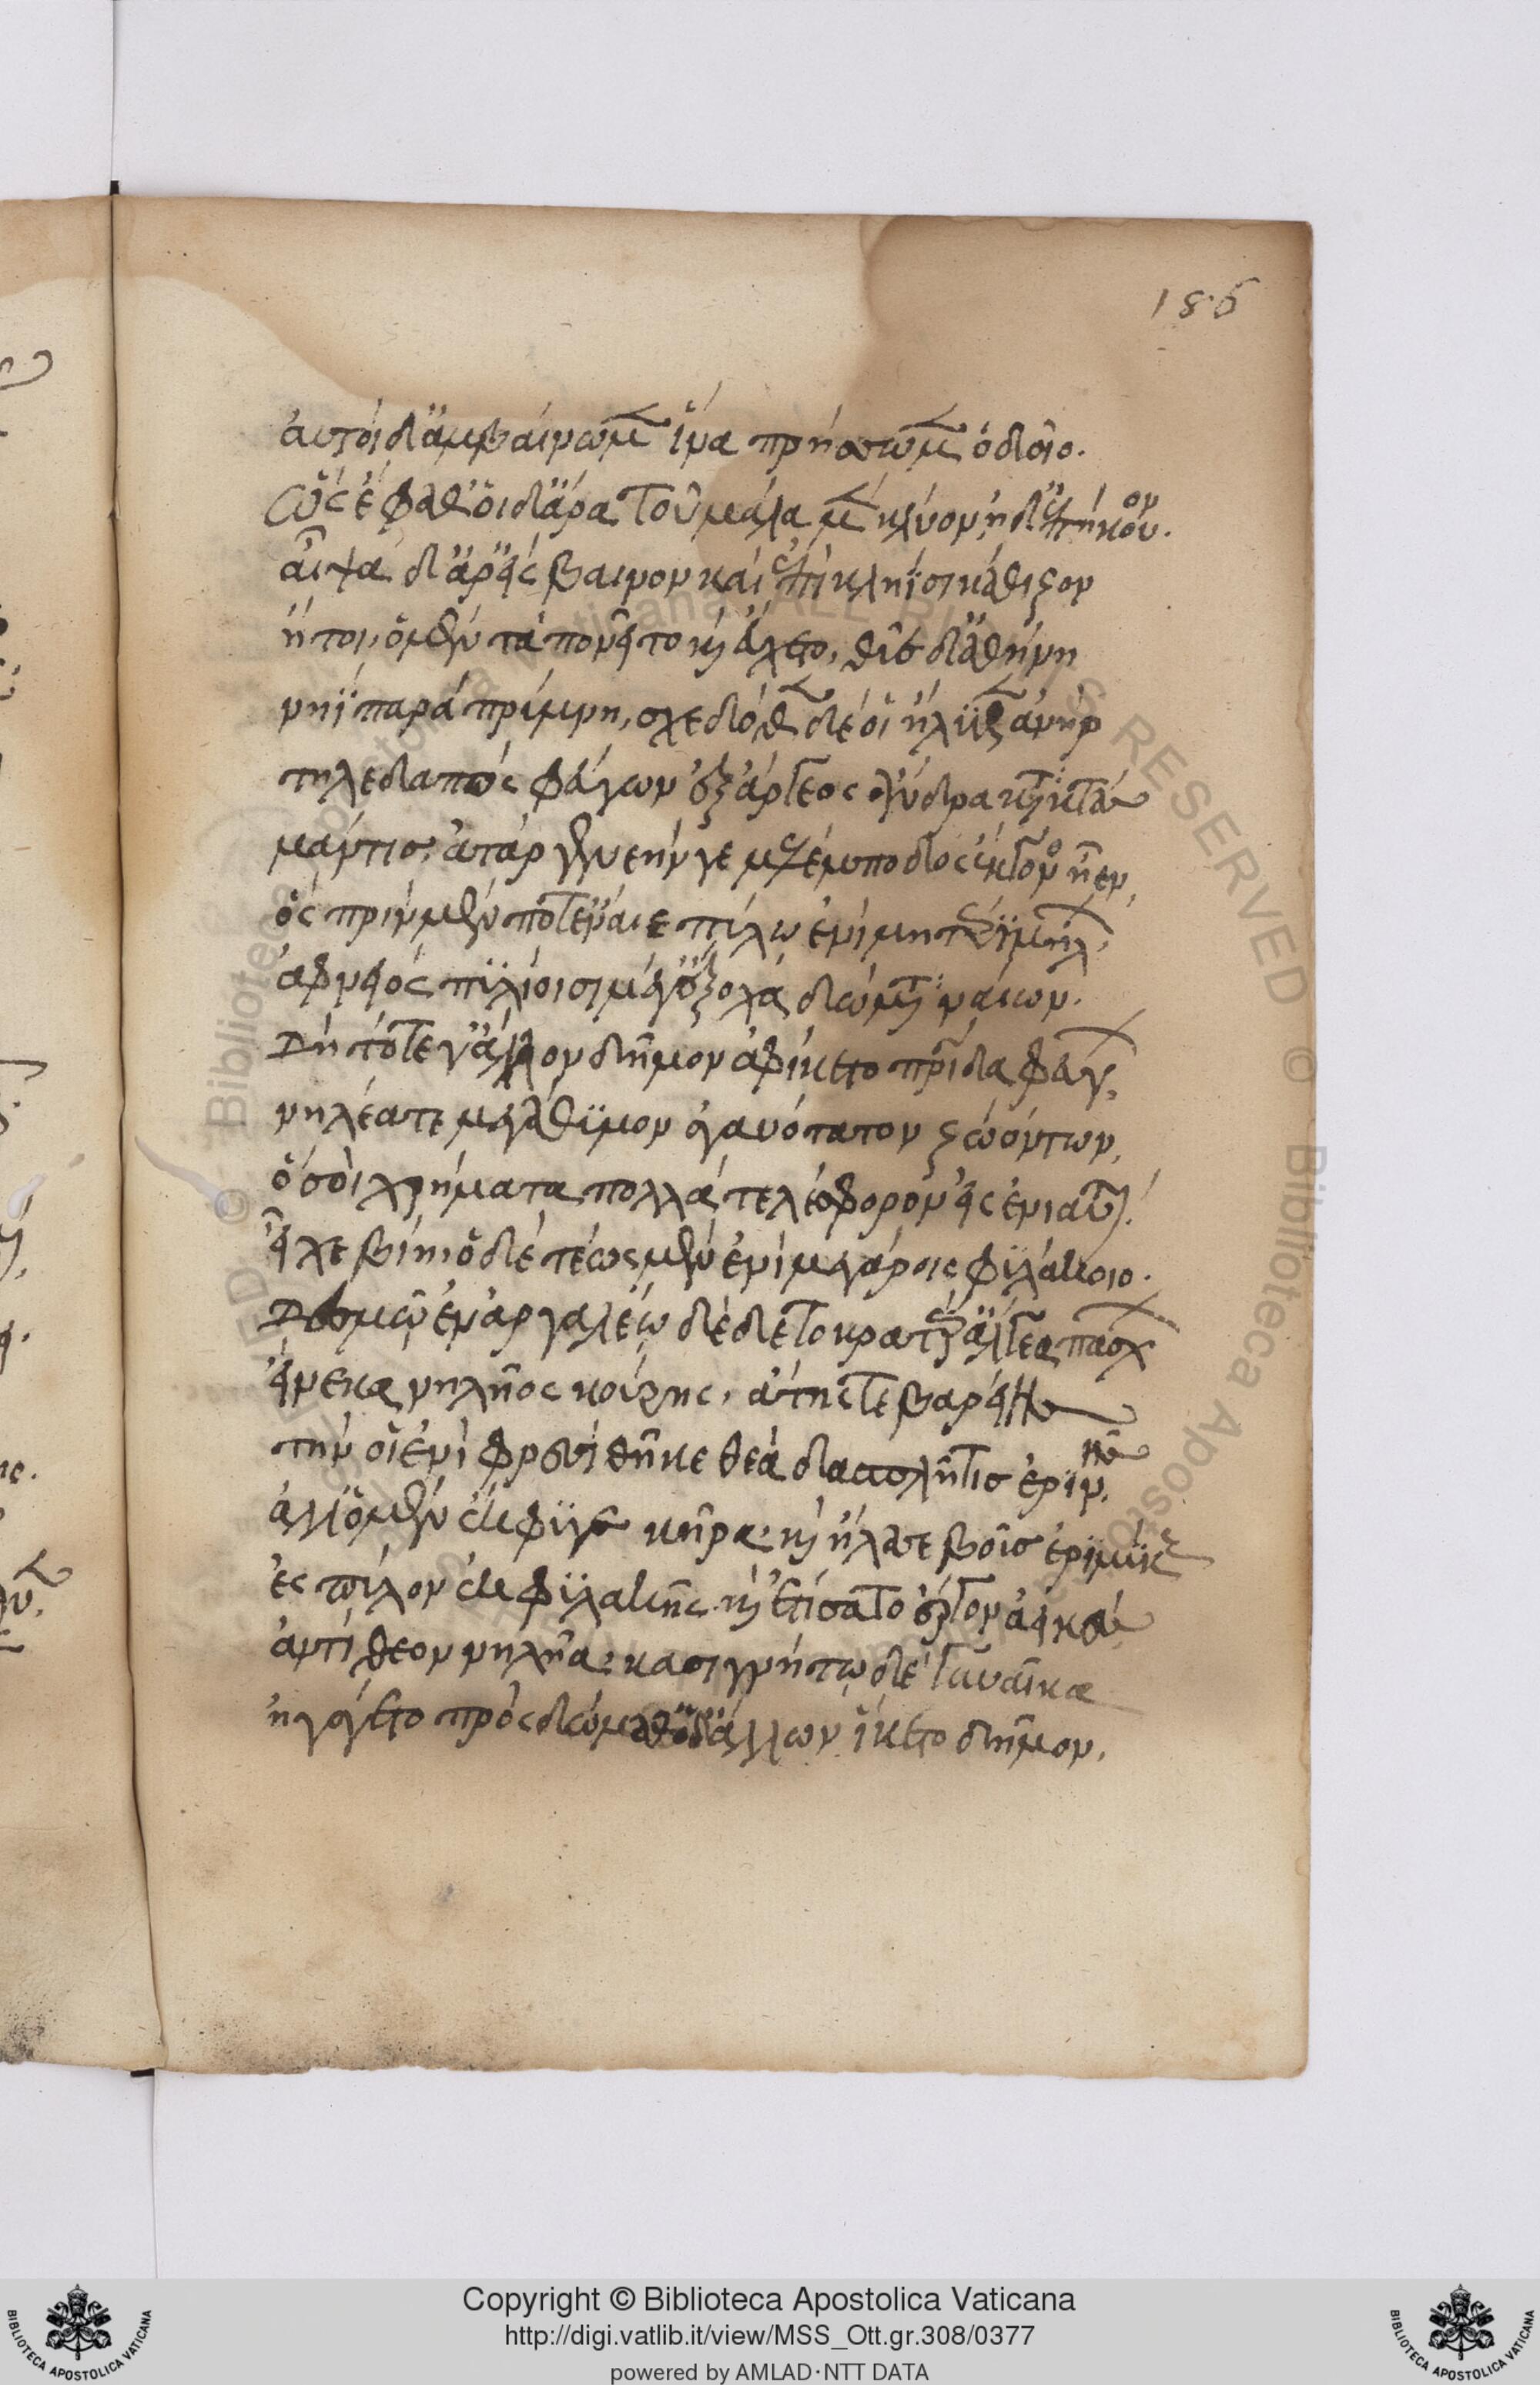 186
αυτοὶ δ' ἀμβαίνωμεν ἵνα πρήσσωμεν ὁδοῖο.
Ὣς ἔφαθ' οἱ δ' ἄρα τοῦ μάλα μὲν κλύον, ἠδ' ἐπίθοντο
αἶψα δ' ἄρ' εἴσβαινον καὶ ἐπὶ κληῗσι κάθιζον
ἤτοι ὁ μὲν τὰ πονεῖτο καὶ εὔχετο, θῦε δ' ἀθήνη
νηῒ παρὰ πρύμνῃ, σχεδόθεν δέ οἱ ἤλυθεν ἀνὴρ
τηλεδαπὸς φεύγων ἐξ ἄργεος ἄνδρα κατακτὰς
μάντις· ἀτὰρ γενεήν γε μελάμποδος ἔκγονος ἦεν,
ὃς πρὶν μέν ποτ' ἔναιε πύλῳ ἔνι μητέρι μήλων
ἀφνειὸς πυλίοισι μέγ' ἔξοχα δώματα ναίων.
Δὴ τότε γ' ἄλλον δῆμον ἀφίκετο πατρίδα φεύγων
νηλέα τε μεγάθυμον ἀγαυότατον ζωόντων,
ὅς οἱ χρήματα πολλὰ τελεσφόρον εἰς ἐνιαυτὸν
εἶχε βίῃ· ὁ δὲ τέως μὲν ἐνὶ μεγάροις φυλάκοιο.
Δεσμῷ ἐν ἀργαλέῳ δέδετο κρατέρ' ἄλγεα πάσχων
εἵνεκα νηλῆος κούρης, ἄτης τε βαρείης
τήν οἱ ἐπὶ φρεσὶ θῆκε θεὰ δασπλῆτις ἐριννῦς.
ἀλλ' ὁ μὲν ἔκφυγε κῆρα· καὶ ἤλασε βοῦς ἐριμύκους
ἐς πύλον ἐκ φυλάκης καὶ ἐτίσατο ἔργον ἀεικὲς
ἀντίθεον νηλῆα· κασιγνήτῳ δὲ γυναῖκα
ἠγάγετο πρὸς δώμαθ' ὁ δ' ἄλλων ἵκετο δῆμον,
Copyright © Biblioteca Apostolica Vaticana
http://digi.vatlib.it/view/MSS_Ott.gr.308/0377
powered by AMLAD·NTT DATA